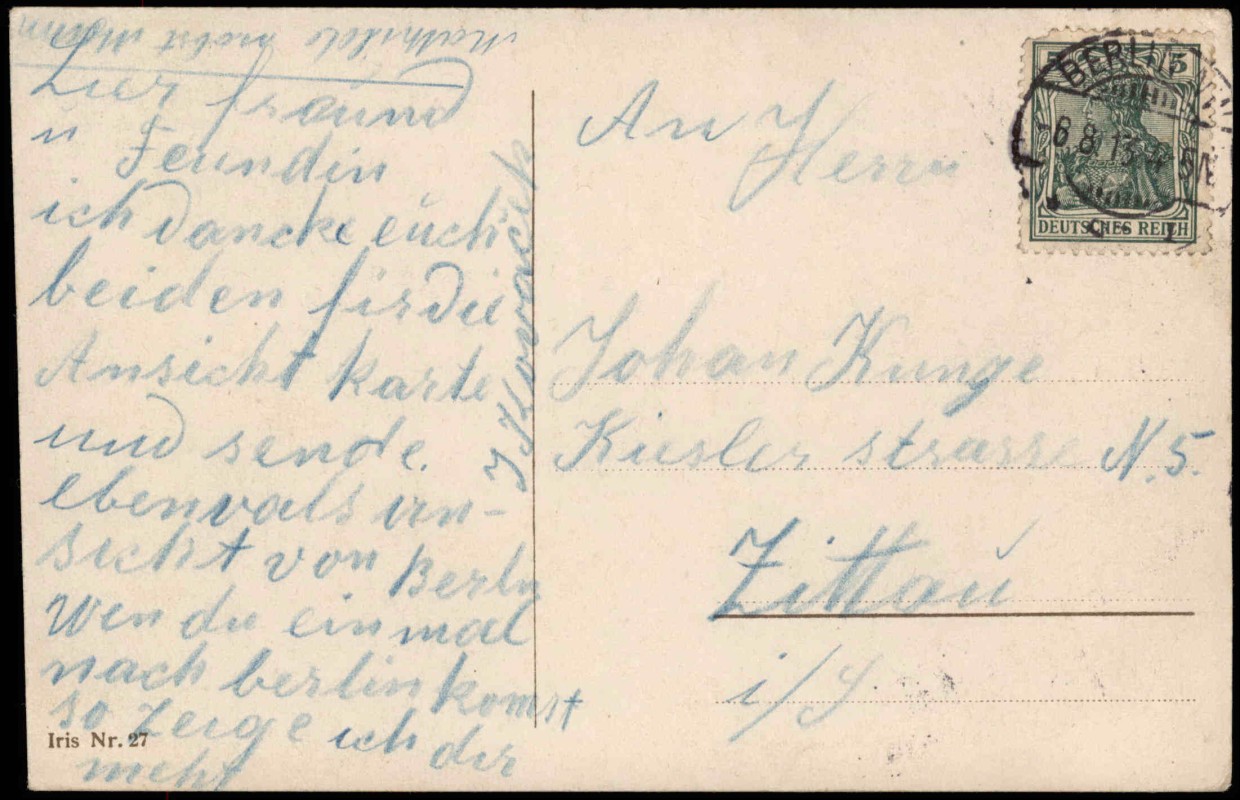 Lier freund
u Feundin
ich dancke euch
beiden für die
Ansicht karte
und sende.
ebenvals an-
sicht von Berln
Wen du einmal
nach berlin komst
so zeige ich dir
mehr
Mathilde nebst Mann
J Kovacik
Iris Nr. 27
An
Herrn
Johan Kunge
Kiesler strasse N. 5.
Zittau
i/S
5
BERLIN
8.8.13
5N
DEUTSCHES REICH